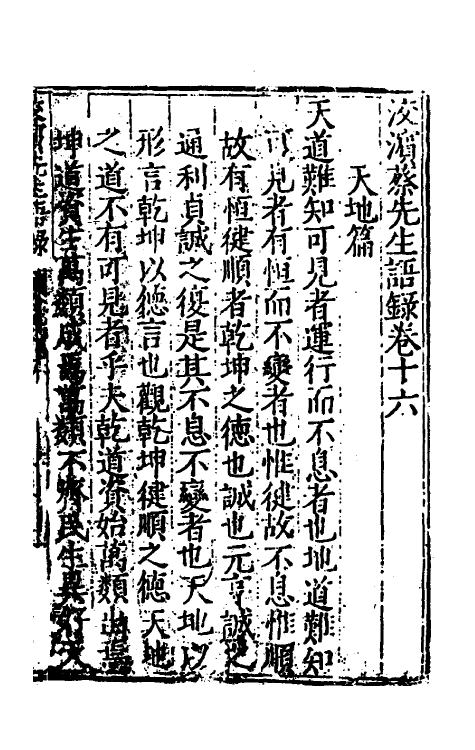 洨濵蔡先生語録卷十六
天地篇
天道難知可見者運行而不息者也地道難知
可見者有恒而不變者也惟健故不息惟順
故有恒健順者乾坤之德也誠也元亨誠之
通利貞誠之復是其不息不變者也天地以
形言乾坤以德言也觀乾坤健順之德天地
之道不有可見者乎大乾道資始萬類出焉
坤道資生萬類成焉萬類不齊民生異